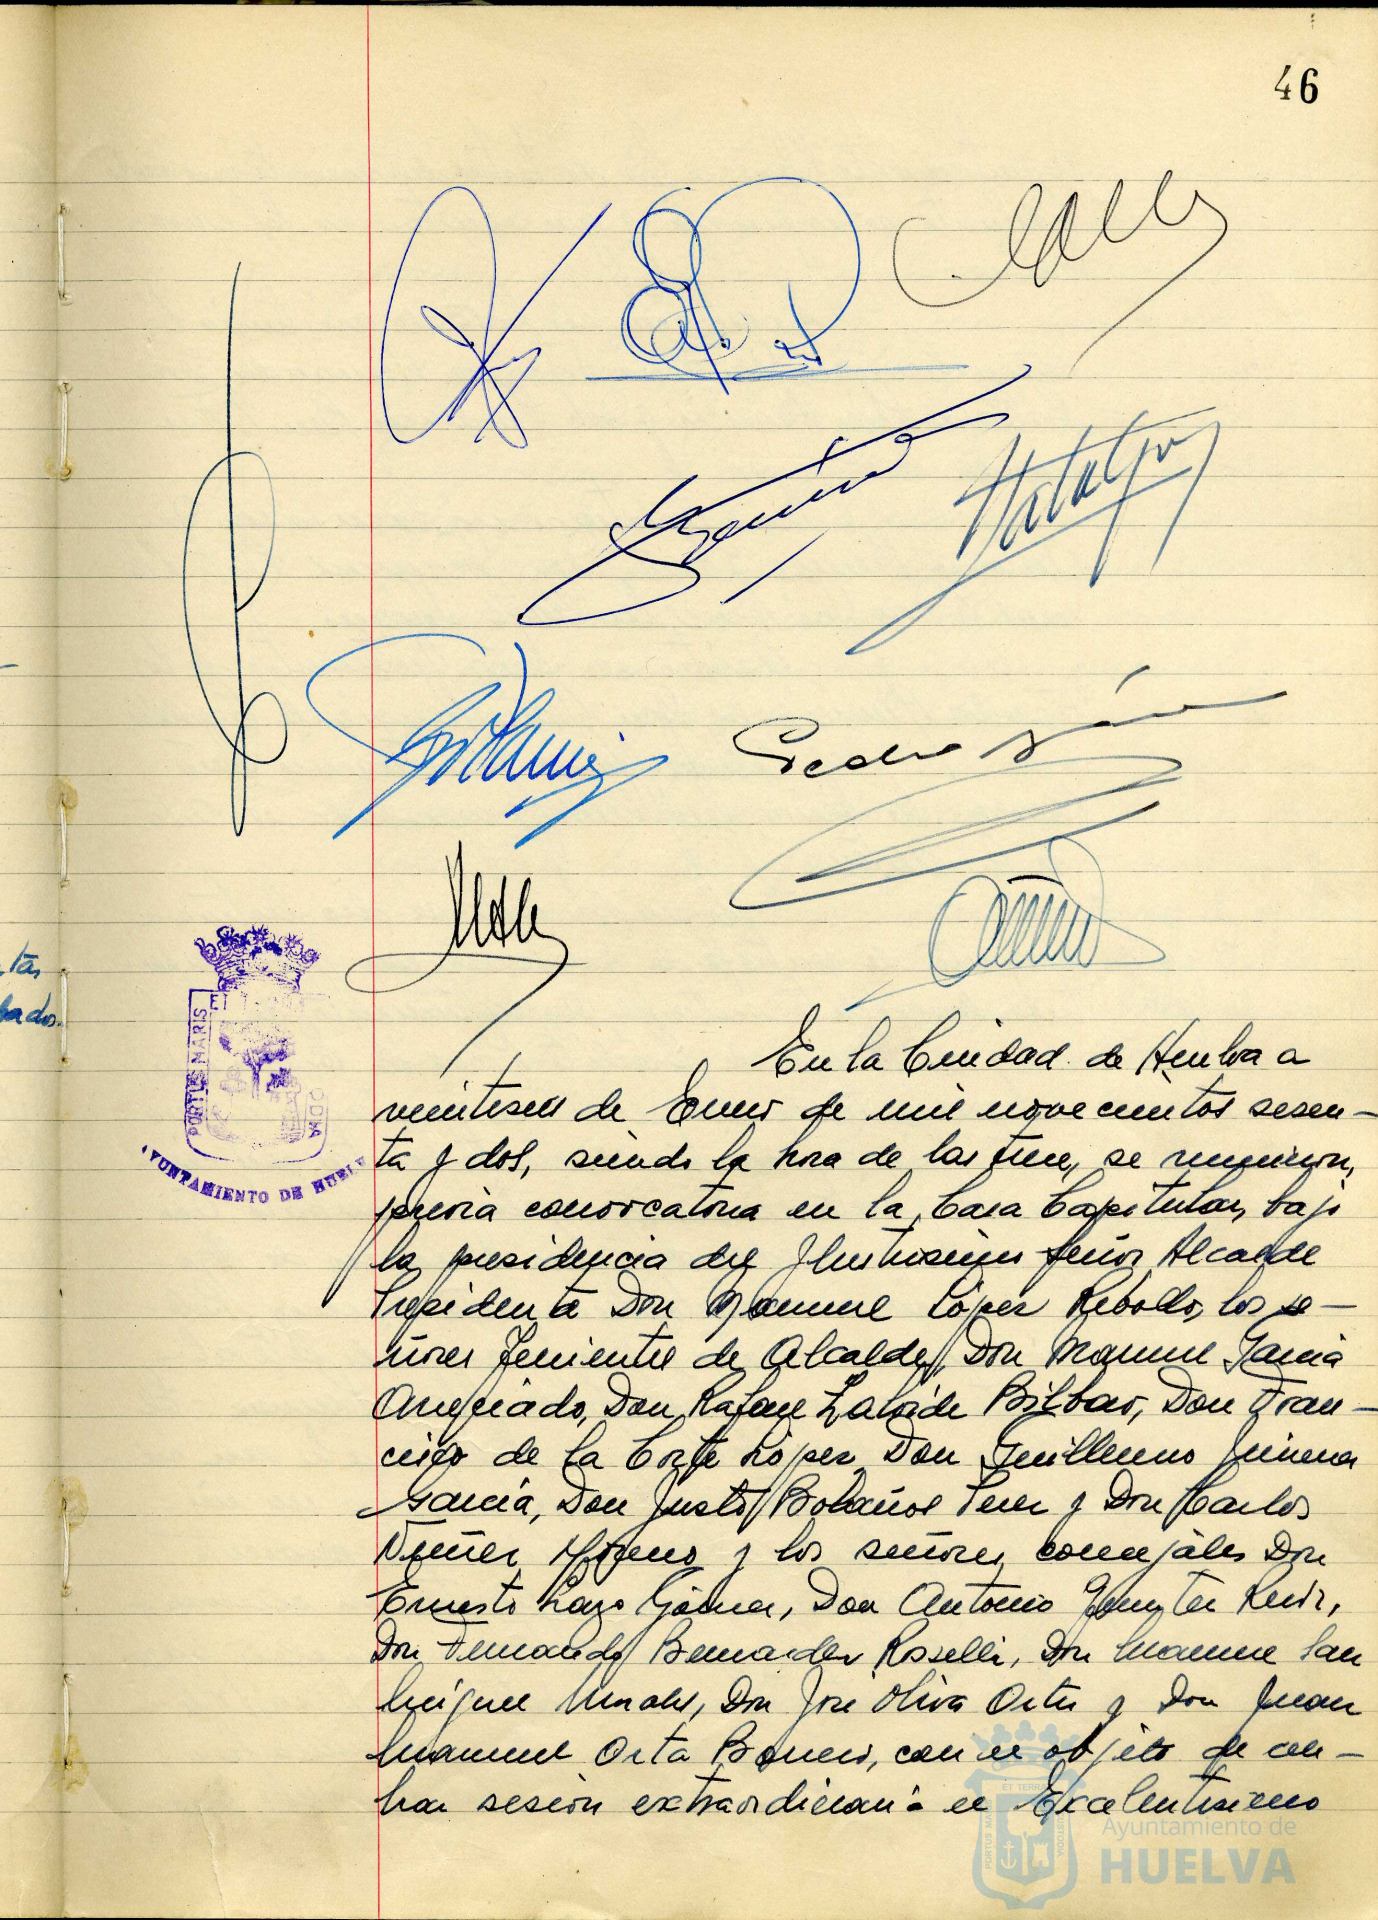 46
Pedro
tas
bados.
PORTUS MARIS
ET
AYUNTAMIENTO DE HUELVA
En la Ciudad de Huelva a
veintiseis de Enero de mil novecientos sesen-
ta y dos, siendo la hora de las trece, se reunieron,
previa convocatoria en la Casa Capitular, bajo
la presidencia del Ilustrisimo señor Alcalde
Presidente Don Manuel López Rebollo, los se-
ñores Tenientes de Alcalde, Don Manuel Garcia
Anqueado, Don Rafael Bilbao, Don Fran-
cisco de la Corte López, Don Guillermo Jimenez
Garcia, Don Justo Bolaños Perez y Don Carlos
Nuñez Moreno y los señores concejales Don
Ernesto Lazo Gómez, Don Antonio Ruiz,
Don Fernando Bernardez Rosselli, Don Manuel San
Miguel, Don José Oliva Ortiz y Don Juan
Manuel Orta Borrero, con el objeto de cele-
brar sesión extraordinaria el Excelentisimo
PORTUS MARIS
ET TERRAE
CUSTODIA
Ayuntamiento de
HUELVA